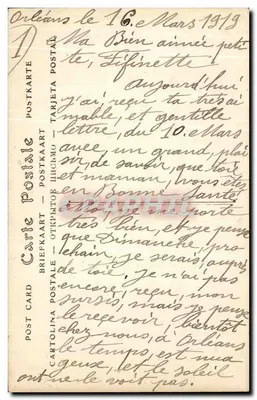 Orléans le 16 Mars 1919
1)
Ma Bien aimée peti
te, Fifinette
aujourd'hui
j'ai, reçu ta très ai
mable, et gentille
lettre, du 10 Mars
avec, un grand, plai
sir de savoir, que toie
et maman, vous êtes
en Bonne Santé
Moi, je me porte
très bien, et je pense
que Dimanche, pro
chain, je serais, auprès
de toie. Je n'ai pas
encore, reçu, mon
sursis, mais je pense
le recevoir Bientôt
chez nous, à Orléans
le temps, est nua
geux, et le soleil
ont ne le voit pas.
Carte Postale
POST CARD — BRIEFKAART — POSTKAART — POSTKARTE
CARTOLINA POSTALE — ОТКРЫТОЕ ПИСЬМО — TARJETA POSTAL